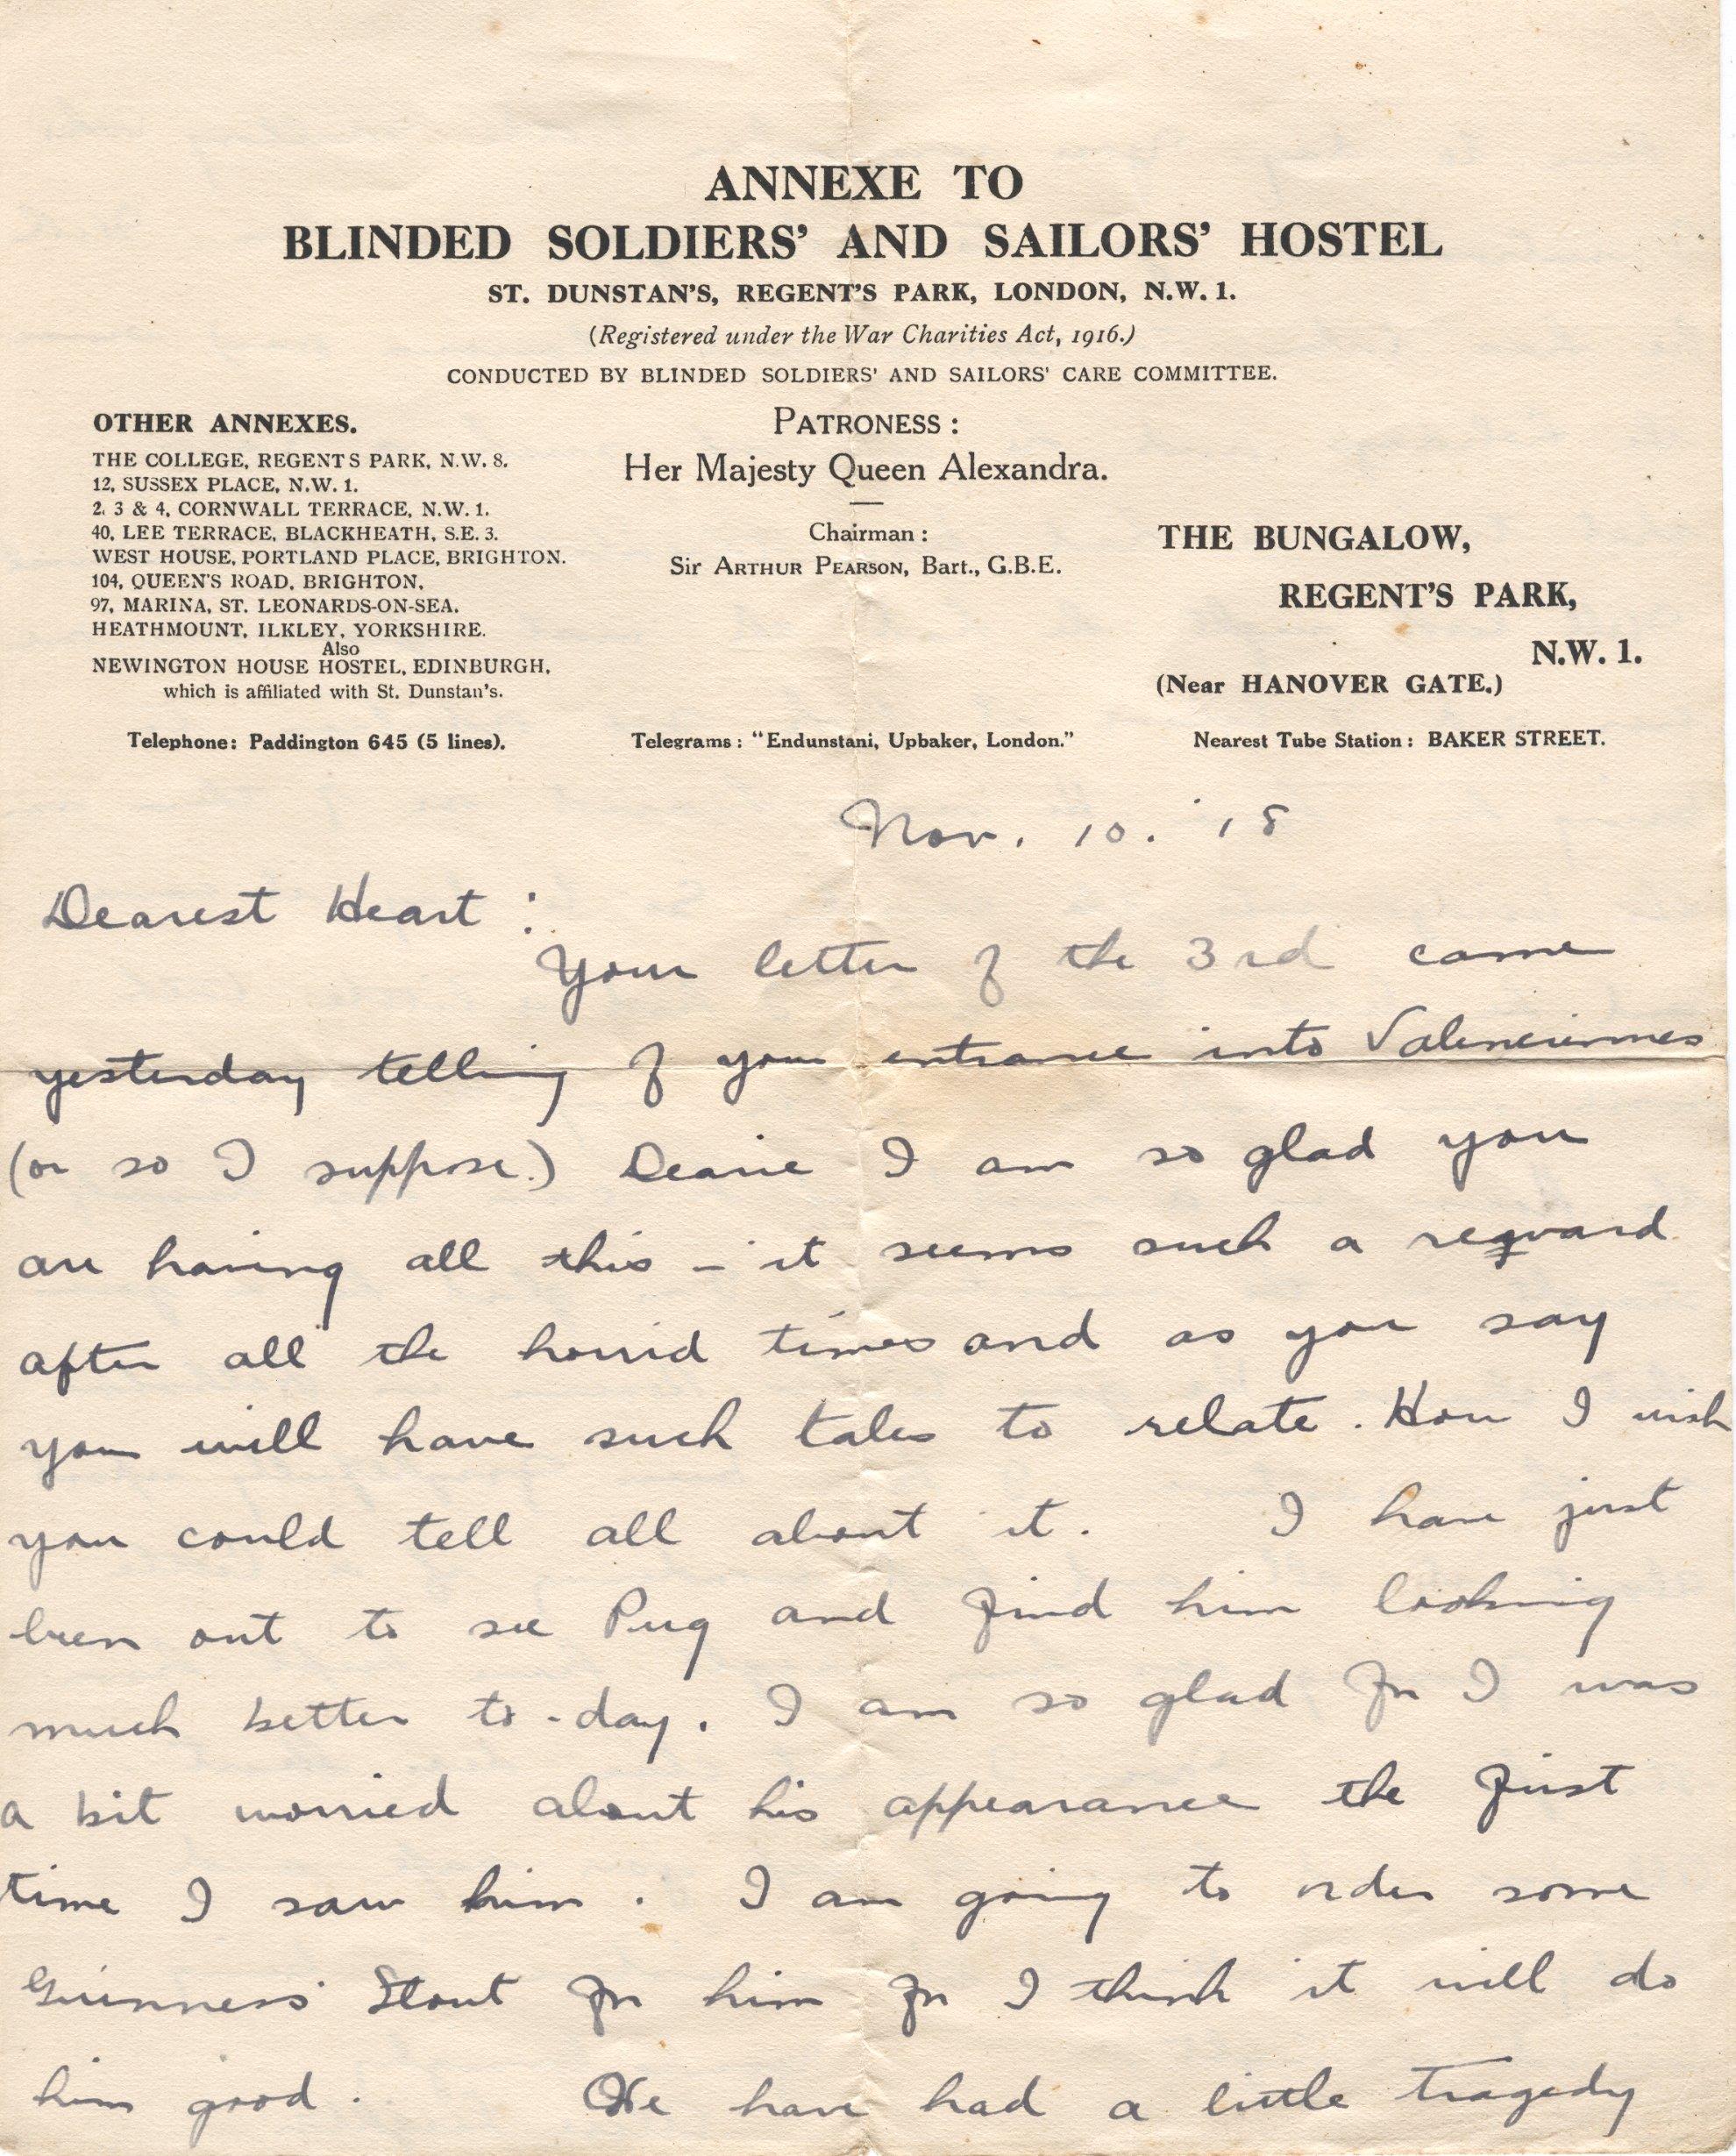 ANNEXE TO
BLINDED SOLDIERS' AND SAILORS' HOSTEL
ST. DUNSTAN'S, REGENT'S PARK, LONDON, N.W. 1.
(Registered under the War Charities Act, 1916.)
CONDUCTED BY BLINDED SOLDIERS' AND SAILORS' CARE COMMITTEE.
OTHER ANNEXES.
THE COLLEGE, REGENTS PARK, N.W. 8.
12, SUSSEX PLACE, N.W. 1.
2, 3 & 4, CORNWALL TERRACE, N.W. 1.
40, LEE TERRACE, BLACKHEATH, S.E. 3.
WEST HOUSE, PORTLAND PLACE, BRIGHTON.
104, QUEEN'S ROAD, BRIGHTON.
97, MARINA, ST. LEONARDS-ON-SEA.
HEATHMOUNT, ILKLEY, YORKSHIRE.
Also
NEWINGTON HOUSE HOSTEL, EDINBURGH,
which is affiliated with St. Dunstan's.
PATRONESS :
Her Majesty Queen Alexandra.
Chairman :
Sir ARTHUR PEARSON, Bart., G.B.E.
THE BUNGALOW,
REGENT'S PARK,
N.W. 1.
(Near HANOVER GATE.)
Telephone: Paddington 645 (5 lines).
Telegrams : "Endunstani, Upbaker, London."
Nearest Tube Station : BAKER STREET.
Nov. 10. '18
Dearest Heart :
Your letter of the 3rd came
yesterday telling of your entrance into Valenciennes
(or so I suppose.) Dearie I am so glad you
are having all this - it seems such a reward
after all the horrid times and as you say
you will have such tales to relate. How I wish
you could tell all about it. I have just
been out to see Pug and find him looking
much better to-day. I am so glad for I was
a bit worried about his appearance the first
time I saw him. I am going to order some
Guinness' Stout for him for I think it will do
him good. We have had a little tragedy